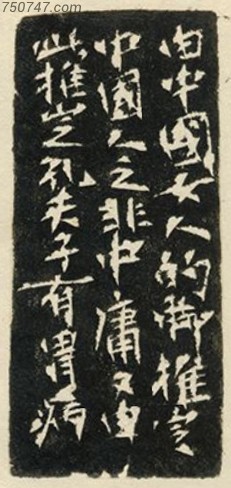 750747.com
由中國女人的脚推定
中國人之非中庸又由
此推定孔夫子有胃病